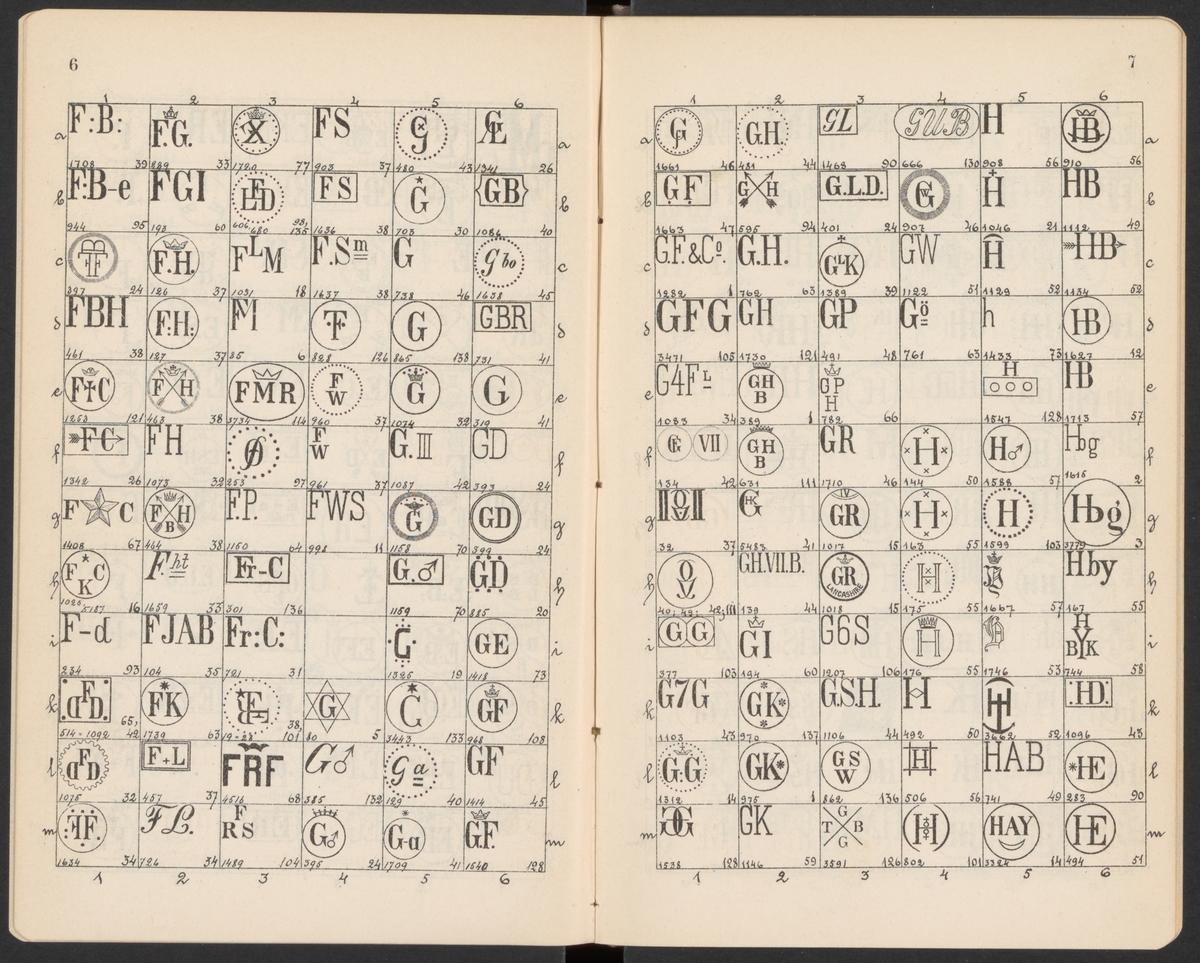 6
1 2 3 4 5 6
a F:B: F.G. X FS a
1708 39 889 33 1720 77 903 37 480 43 1341 26
b F:B-e FGI FS G GB b
944 95 193 60 606, 680 98, 135 1636 38 703 30 1086 40
c F.H. FLM F.Sm G Gbo c
897 24 126 37 1031 18 1637 38 738 46 1638 45
d FBH F:H: FM ·F· G GBR d
461 38 127 37 85 6 828 126 865 138 731 41
e F†C F H FMR F W G G e
1253 121 463 38 3734 114 960 37 1074 32 319 41
f FC FH F W G.III GD f
1342 26 1073 32 253 97 961 37 1087 42 393 24
g F C F H B F.P. FWS G GD g
1408 67 464 38 1150 64 998 11 1158 70 399 24
h F C K F.ht Fr-C G.♂ GD h
1026, 5187 16 1659 33 301 136 1159 70 885 20
i F-d FJAB Fr:C: G GE i
234 93 104 35 721 31 1325 19 1418 73
k FK G G GF k
514-1092 65, 42 1739 63 19-28 38, 101 80 5 3443 133 968 108
l F+L FRF G♂ Ga GF l
1075 32 457 37 4516 68 385 132 129 40 1414 45
m F. FL. F RS G♂ G-a GF. m
1634 34 726 34 1489 104 395 24 1709 41 1540 128
1 2 3 4 5 6
7
1 2 3 4 5 6
a G.H. GL GUB H HB a
1661 46 481 44 1468 90 666 130 908 56 910 56
b GF G H G.L.D. GW H HB b
1663 47 595 94 401 24 907 46 1046 21 1112 49
c G.F.&Co. G.H. GLK GW H HB c
1282 1 762 63 1389 39 1122 51 1129 52 1134 52
d GFG GH GP Gö h HB d
3471 105 1730 121 491 48 761 63 1433 73 1627 12
e G4FL GH B GP H H HB e
1083 34 389 1 782 66 1547 128 1713 57
f G VII GH B GR H H♂ Hbg f
134 42 631 111 1710 46 144 50 1588 57 1615 2
g GR IV H H Hbg g
32 37 5483 41 1017 15 163 55 1599 103 3779 3
h GH.VII.B. GR LANCASHIRE H Hby h
40; 49; 42; III 139 44 1018 15 175 55 1667 57 167 55
i GG GI G6S H H YK B i
377 103 194 60 1207 106 176 55 1746 53 744 58
k G7G GK G.S.H. H H :HD: k
1103 43 970 137 1106 44 492 50 3662 52 1096 43
l G.G GK GS W H HAB HE l
1312 14 975 1 862 136 506 56 741 49 283 90
m GG GK G T B G H HAY HE m
1538 128 1146 59 3591 126 802 101 3324 14 494 51
1 2 3 4 5 6